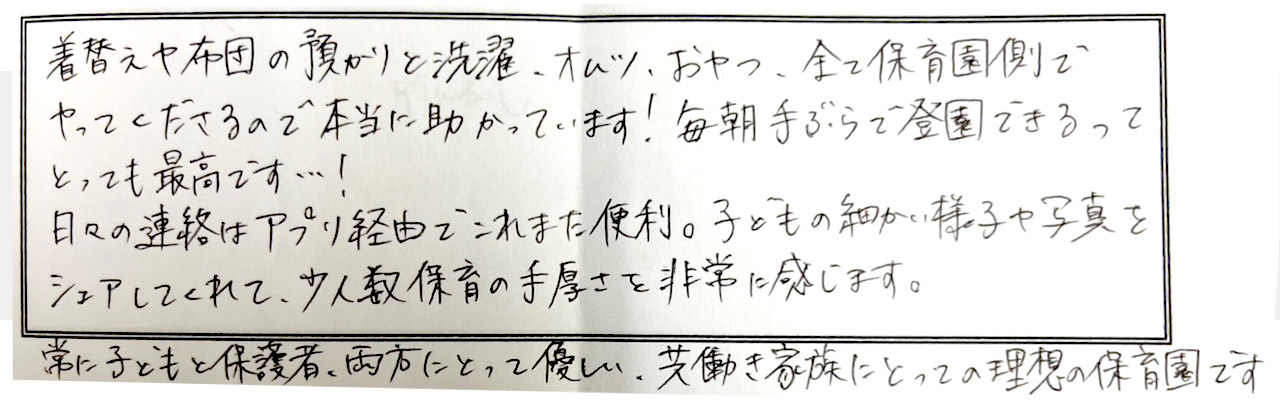 着替えや布団の預かりと洗濯、オムツ、おやつ、全て保育園側で
やってくださるので本当に助かっています!毎朝手ぶらで登園できるって
とっても最高です…!
日々の連絡はアプリ経由でこれまた便利。子どもの細かい様子や写真を
シェアしてくれて、少人数保育の手厚さを非常に感じます。
常に子どもと保護者、両方にとって優しい、共働き家族にとっての理想の保育園です